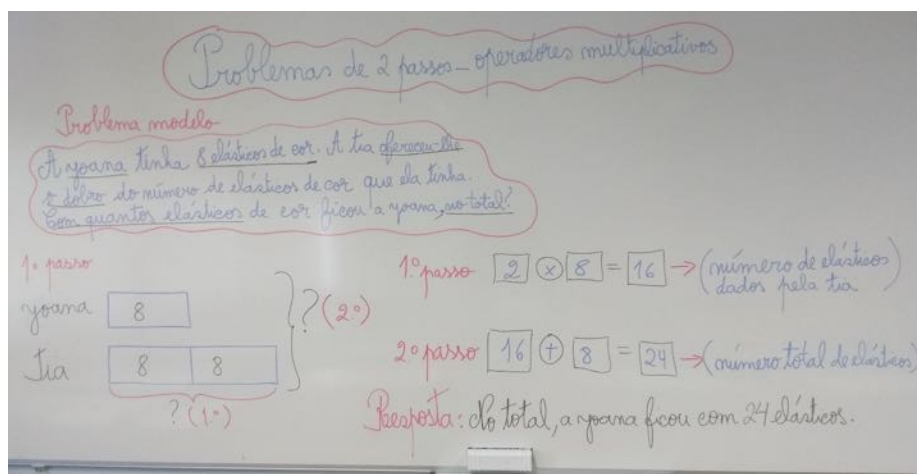 Problemas de 2 passos - operadores multiplicativos
Problema modelo
A yoana tinha 8 elásticos de cor. A tia ofereceu-lhe
o dobro do número de elásticos de cor que ela tinha.
Com quantos elásticos de cor ficou a yoana, no total?
1º passo
yoana 8
Tia 8 8
? (1º)
? (2º)
1º passo 2 × 8 = 16 → (número de elásticos
dados pela tia)
2º passo 16 + 8 = 24 → (número total de elásticos)
Resposta: No total, a yoana ficou com 24 elásticos.